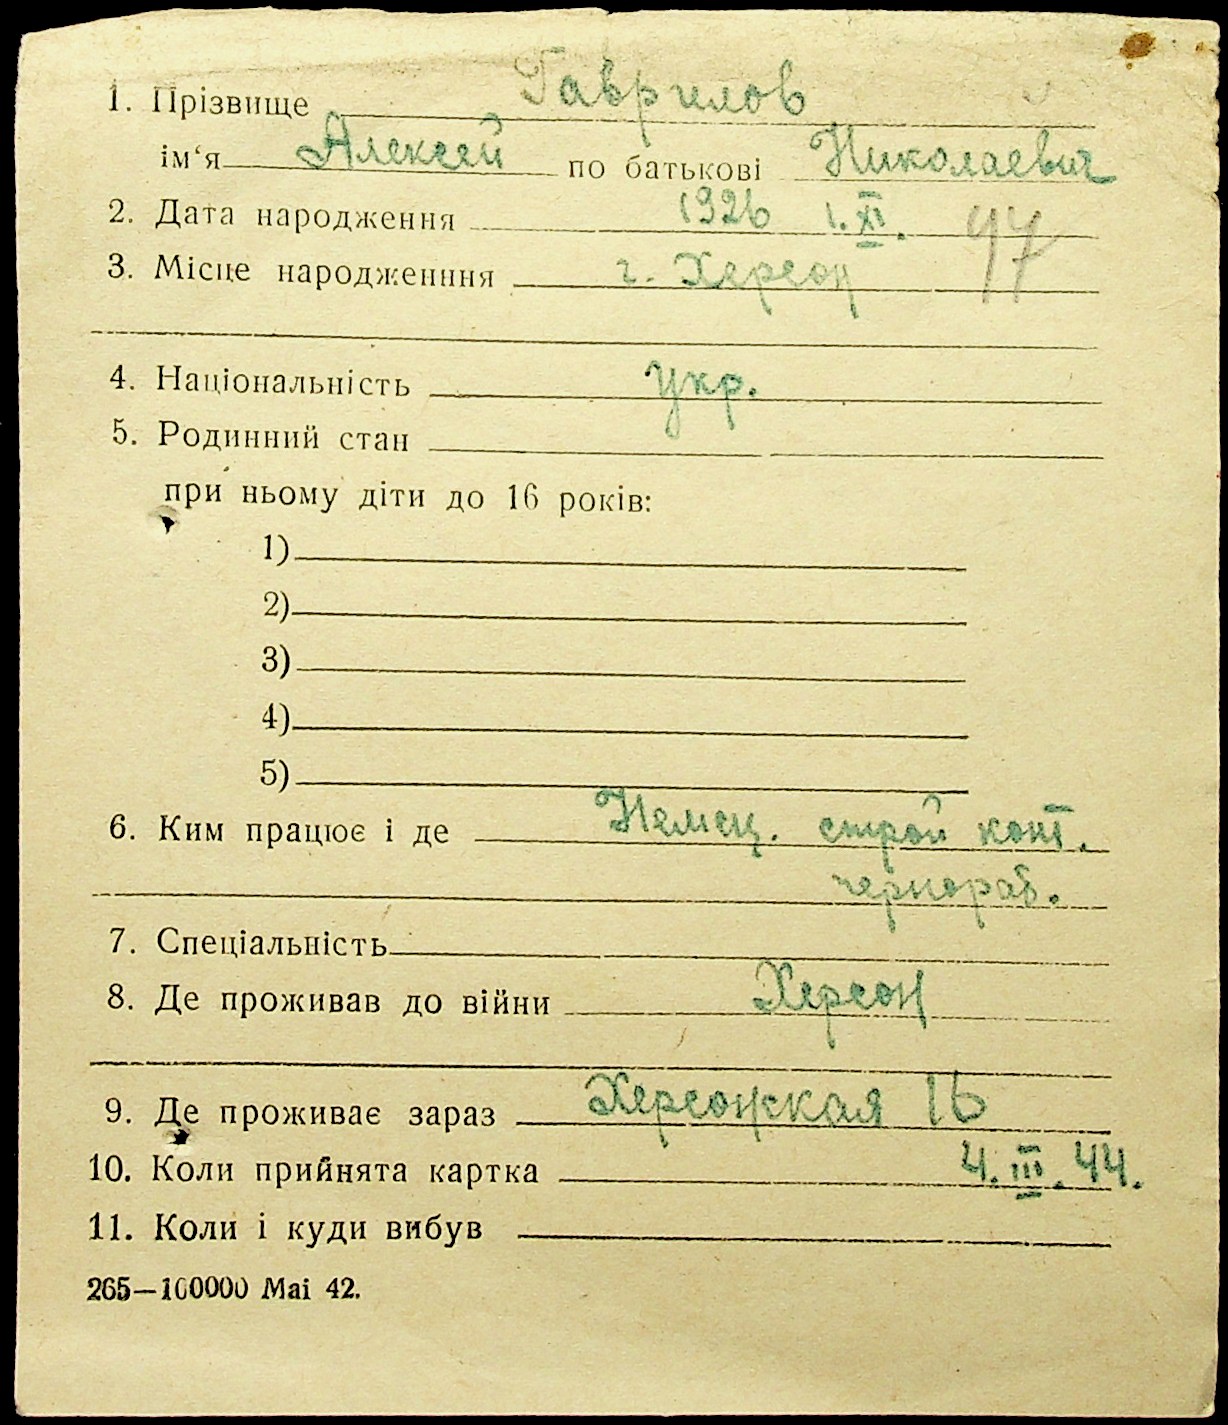 1. Прізвище Гаврилов
ім‘я Алексей по батькові Николаевич
2. Дата народження 1926 1.XI. 97
3. Місце народженння г. Херсон
4. Національність Укр.
5. Родинний стан
при ньому діти до 16 років:
1)
2)
3)
4)
5)
6. Ким працює і де Немец. строй конт.
чернораб.
7. Спеціальність
8. Де проживав до війни Херсон
9. Де проживає зараз Херсонская 16
10. Коли прийнята картка 4.III.44.
11. Коли і куди вибув
265—100000 Mai 42.